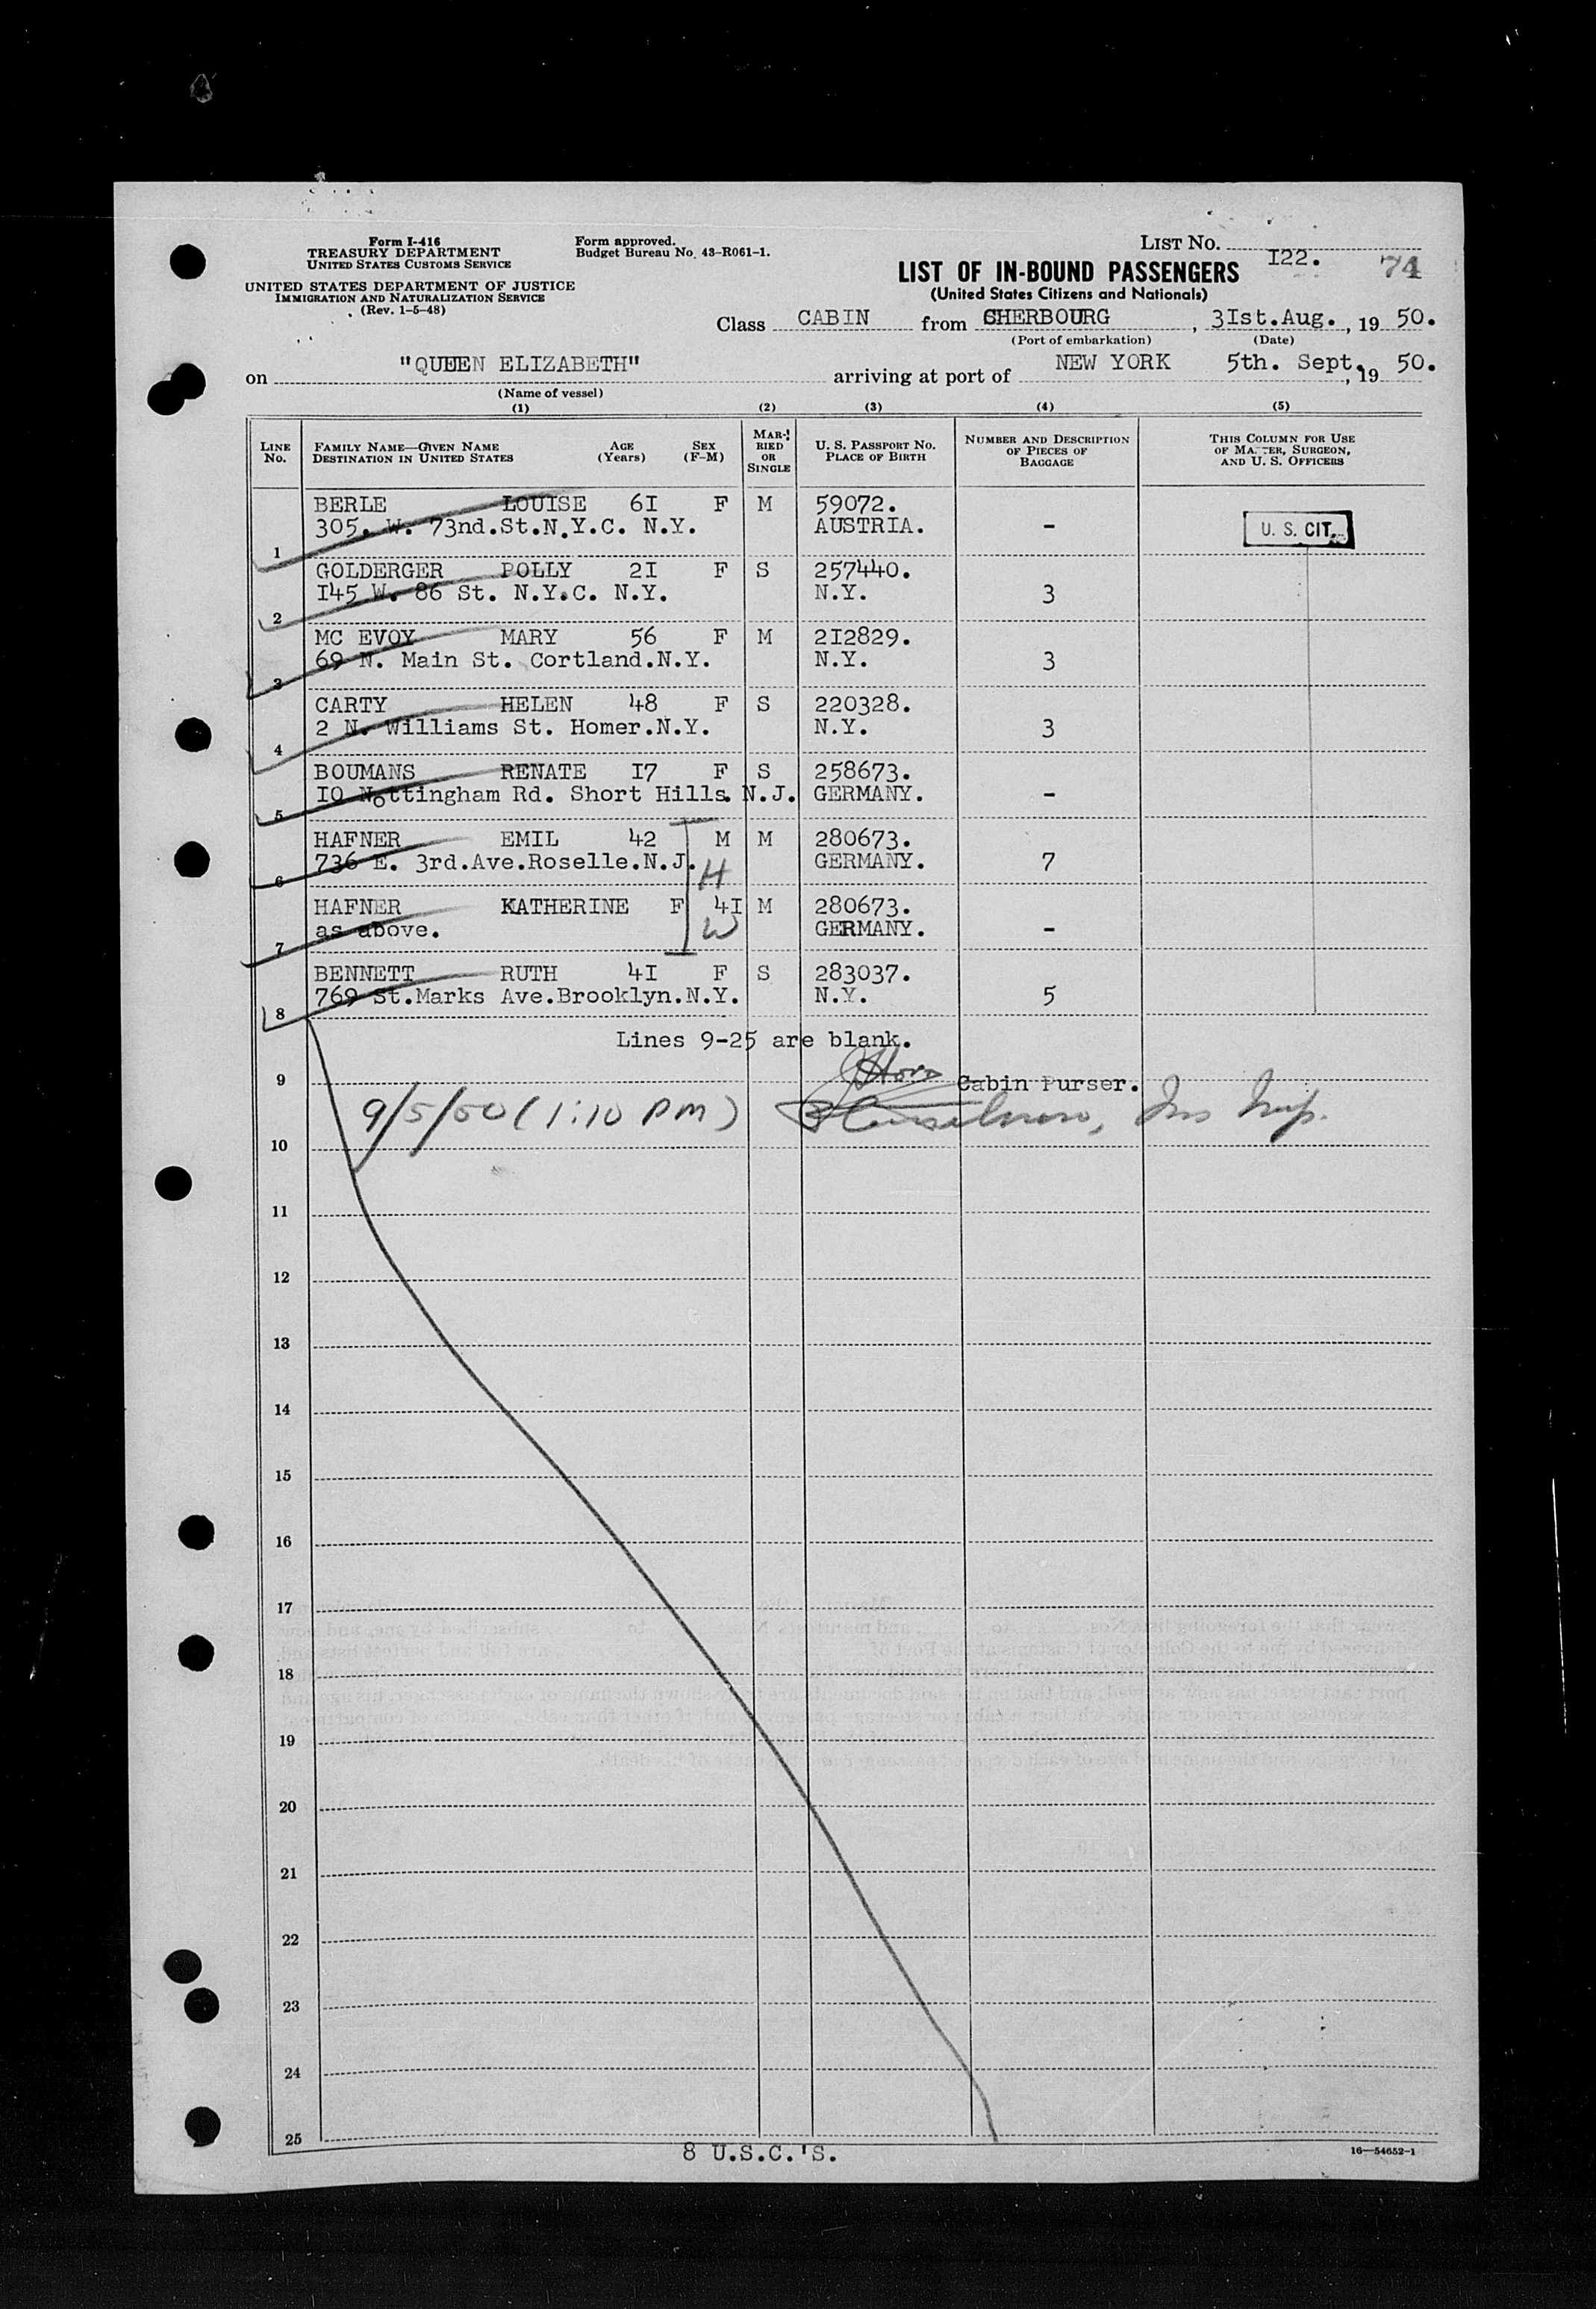 Form I-416
TREASURY DEPARTMENT
UNITED STATES CUSTOMS SERVICE
UNITED STATES DEPARTMENT OF JUSTICE
IMMIGRATION AND NATURALIZATION SERVICE
(Rev. 1-5-48)
Form approved.
Budget Bureau No. 43-R061-1.
LIST NO. I22. 74
LIST OF IN-BOUND PASSENGERS
(United States Citizens and Nationals)
Class CABIN from CHERBOURG, 3Ist.Aug., 19 50.
(Port of embarkation) (Date)
on "QUEEN ELIZABETH" arriving at port of NEW YORK 5th. Sept., 19 50.
(Name of vessel)
(1) (2) (3) (4) (5)
LINE NO. FAMILY NAME—GIVEN NAME DESTINATION IN UNITED STATES AGE (Years) SEX (F-M) MARRIED OR SINGLE U. S. PASSPORT NO. PLACE OF BIRTH NUMBER AND DESCRIPTION OF PIECES OF BAGGAGE THIS COLUMN FOR USE OF MASTER, SURGEON, AND U. S. OFFICERS
BERLE LOUISE 6I F M 59072.
1 305. W. 73nd.St.N.Y.C. N.Y. AUSTRIA. - U. S. CIT.
GOLDERGER POLLY 2I F S 257440.
2 I45 W. 86 St. N.Y.C. N.Y. N.Y. 3
MC EVOY MARY 56 F M 2I2829.
3 69 N. Main St. Cortland.N.Y. N.Y. 3
CARTY HELEN 48 F S 220328.
4 2 N. Williams St. Homer.N.Y. N.Y. 3
BOUMANS RENATE I7 F S 258673.
5 IO Nottingham Rd. Short Hills. N.J. GERMANY. -
HAFNER EMIL 42 M M 280673.
6 736 E. 3rd.Ave.Roselle.N.J. H GERMANY. 7
HAFNER KATHERINE F 4I M 280673.
7 as above. W GERMANY. -
BENNETT RUTH 4I F S 283037.
8 769 St.Marks Ave.Brooklyn.N.Y. N.Y. 5
Lines 9-25 are blank.
9 Cabin Purser.
9/5/50 (1:10 PM)
10
11
12
13
14
15
16
17
18
19
20
21
22
23
24
25
8 U.S.C.'S.
16—54652-1